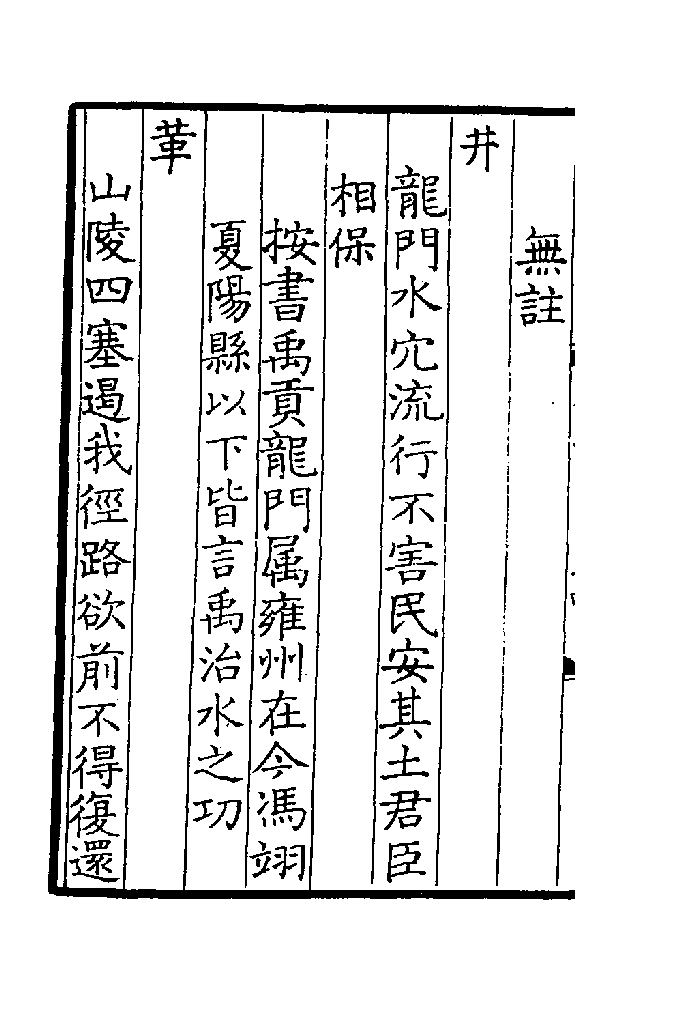 無註
井
龍門水穴流行不害民安其土君臣
相保
按書禹貢龍門属雍州在今馮翊
夏陽縣以下皆言禹治水之功
革
山陵四塞遏我徑路欲前不得復還